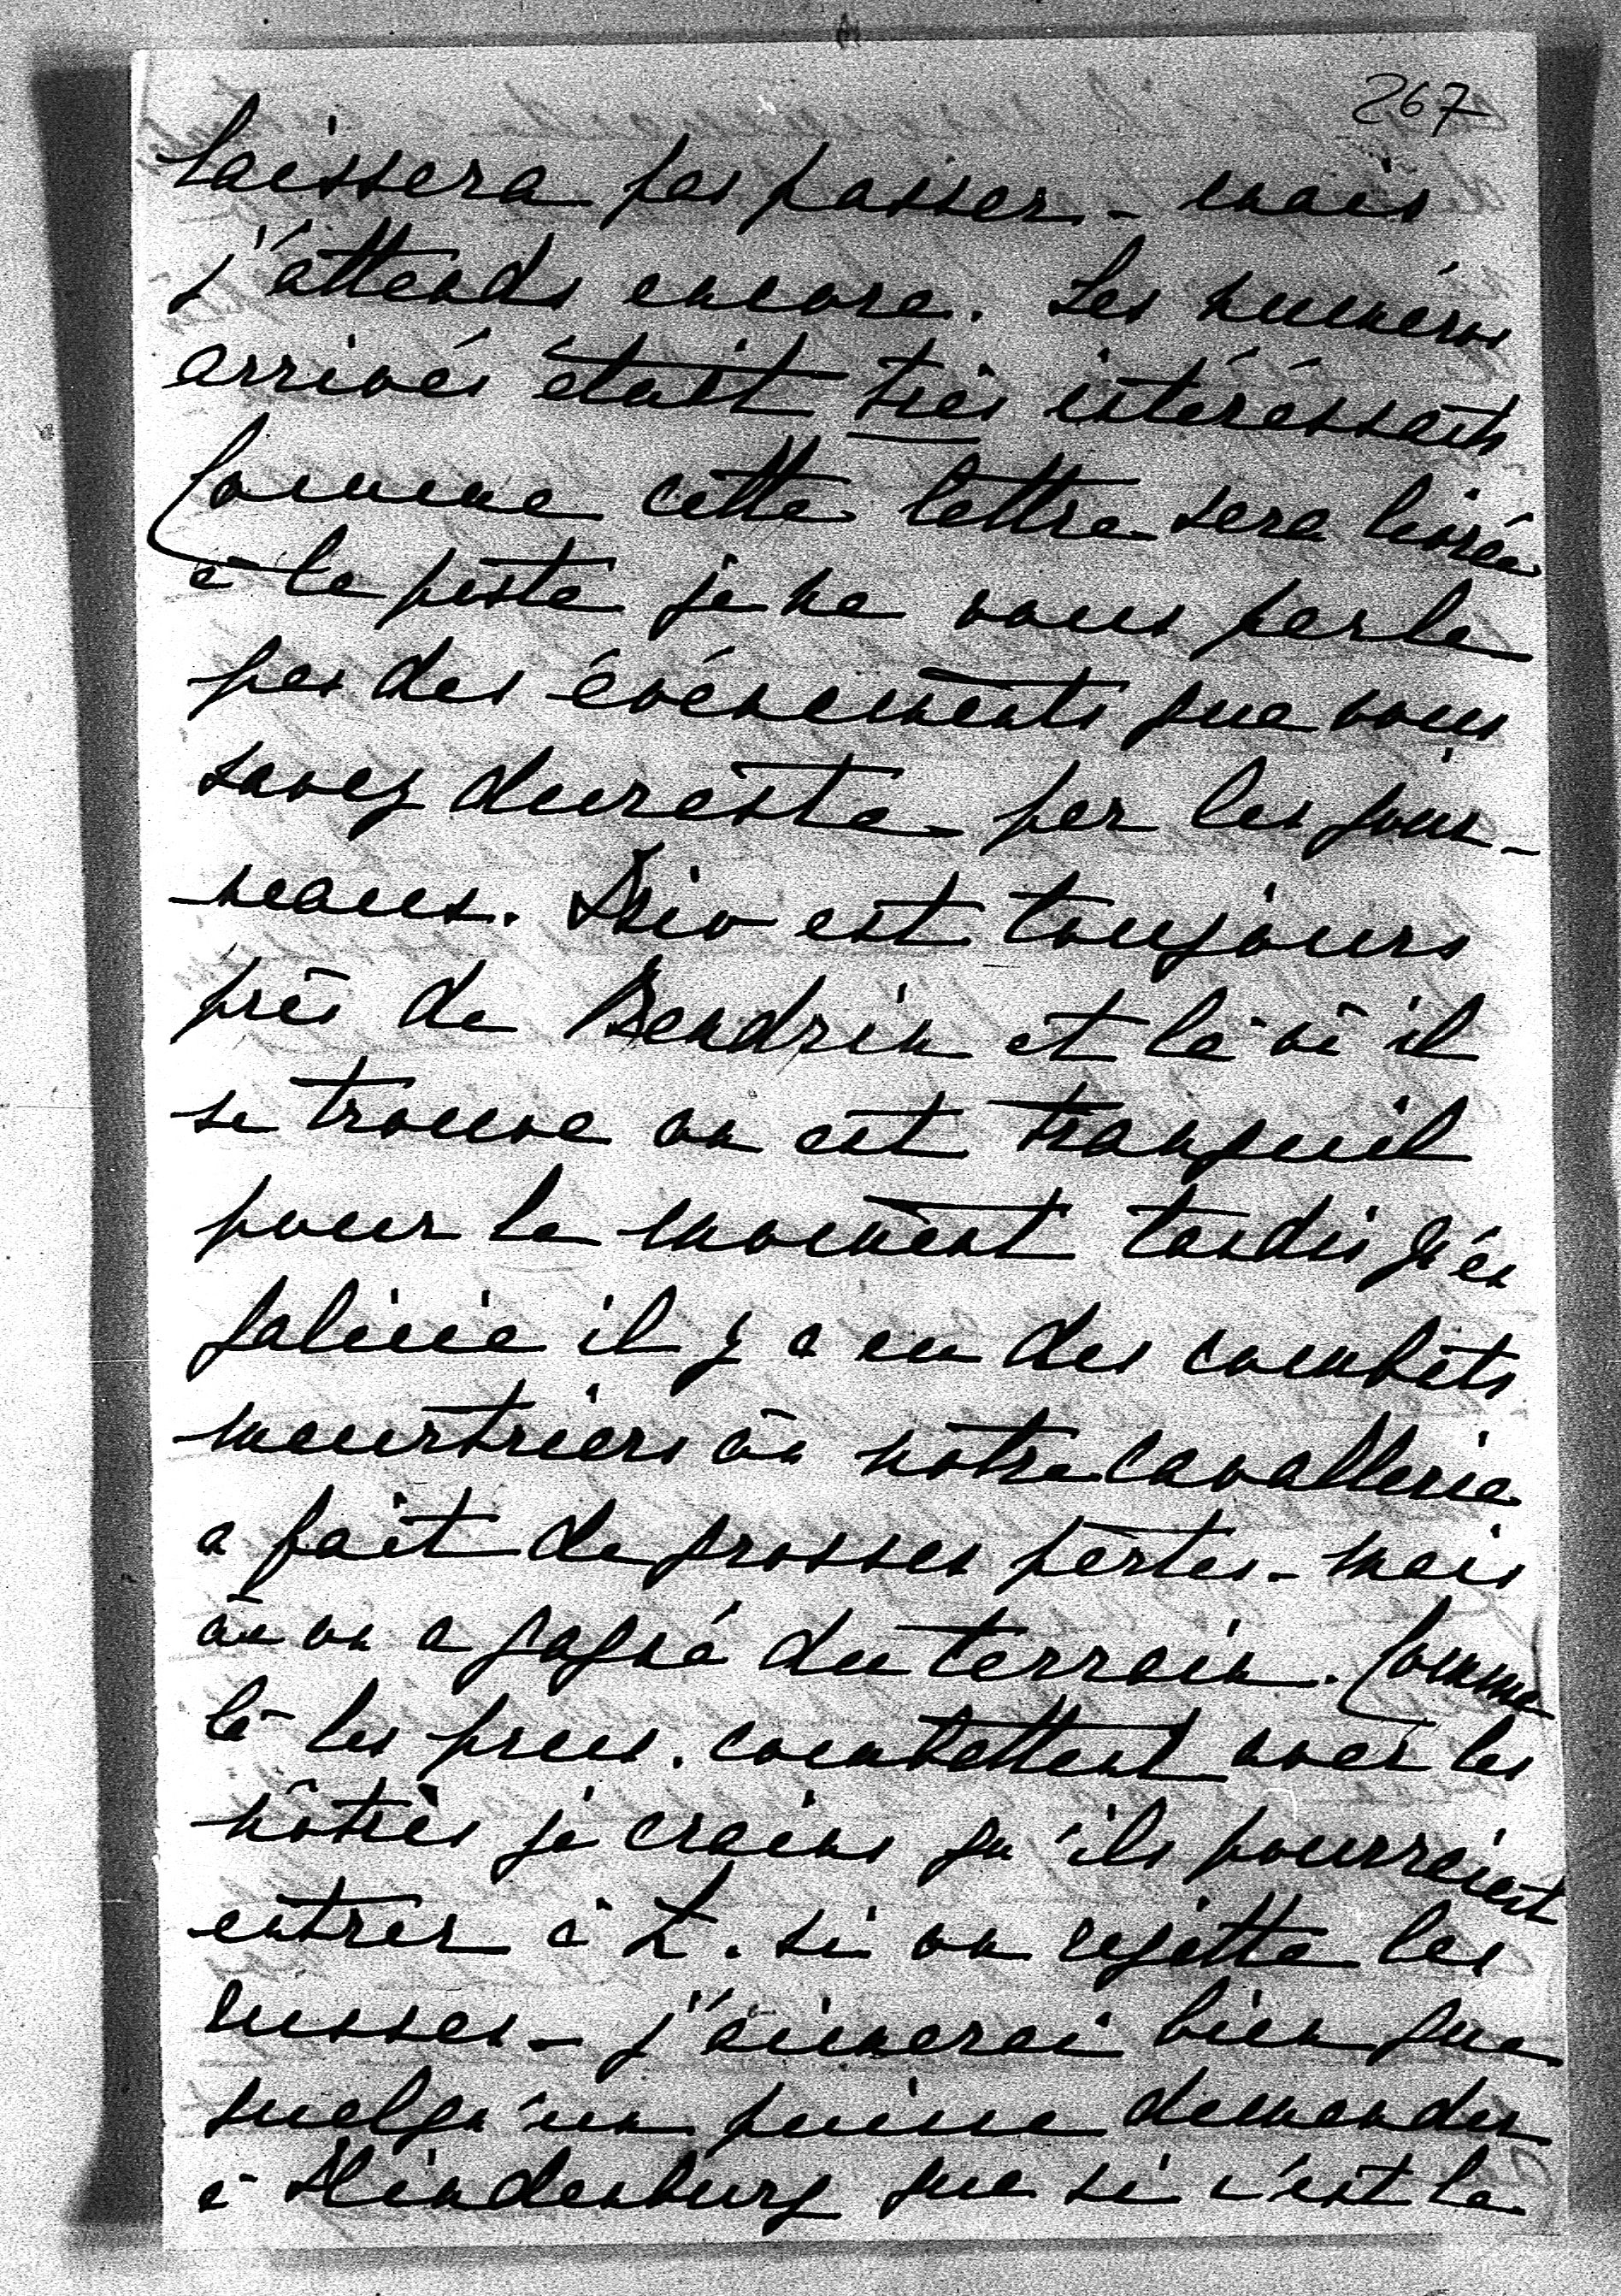 267
laissera pas passer - mais
j'attends encore. Les numéros
arrivés était très intéressants
Comme cette lettre sera livrée
à la poste je ne vous parle
pas des événements que vous
savez dureste - par les jour-
neaux. est toujours
près de et là où il
se trouve on est tranquil
pour le moment tandis qu'en
Galicie il y a eu des combats
meurtriers où notre cavallerie
a fait de grosses pertes - mais
où on a gagné du terrain. Comme
là les pruss. combattent avec les
nôtres je crains qu'ils pourraient
entrer à L. si on rejette les
russes - j'aimerai bien que
quelqu'un puisse demander
à Hindenburg que si c'est la